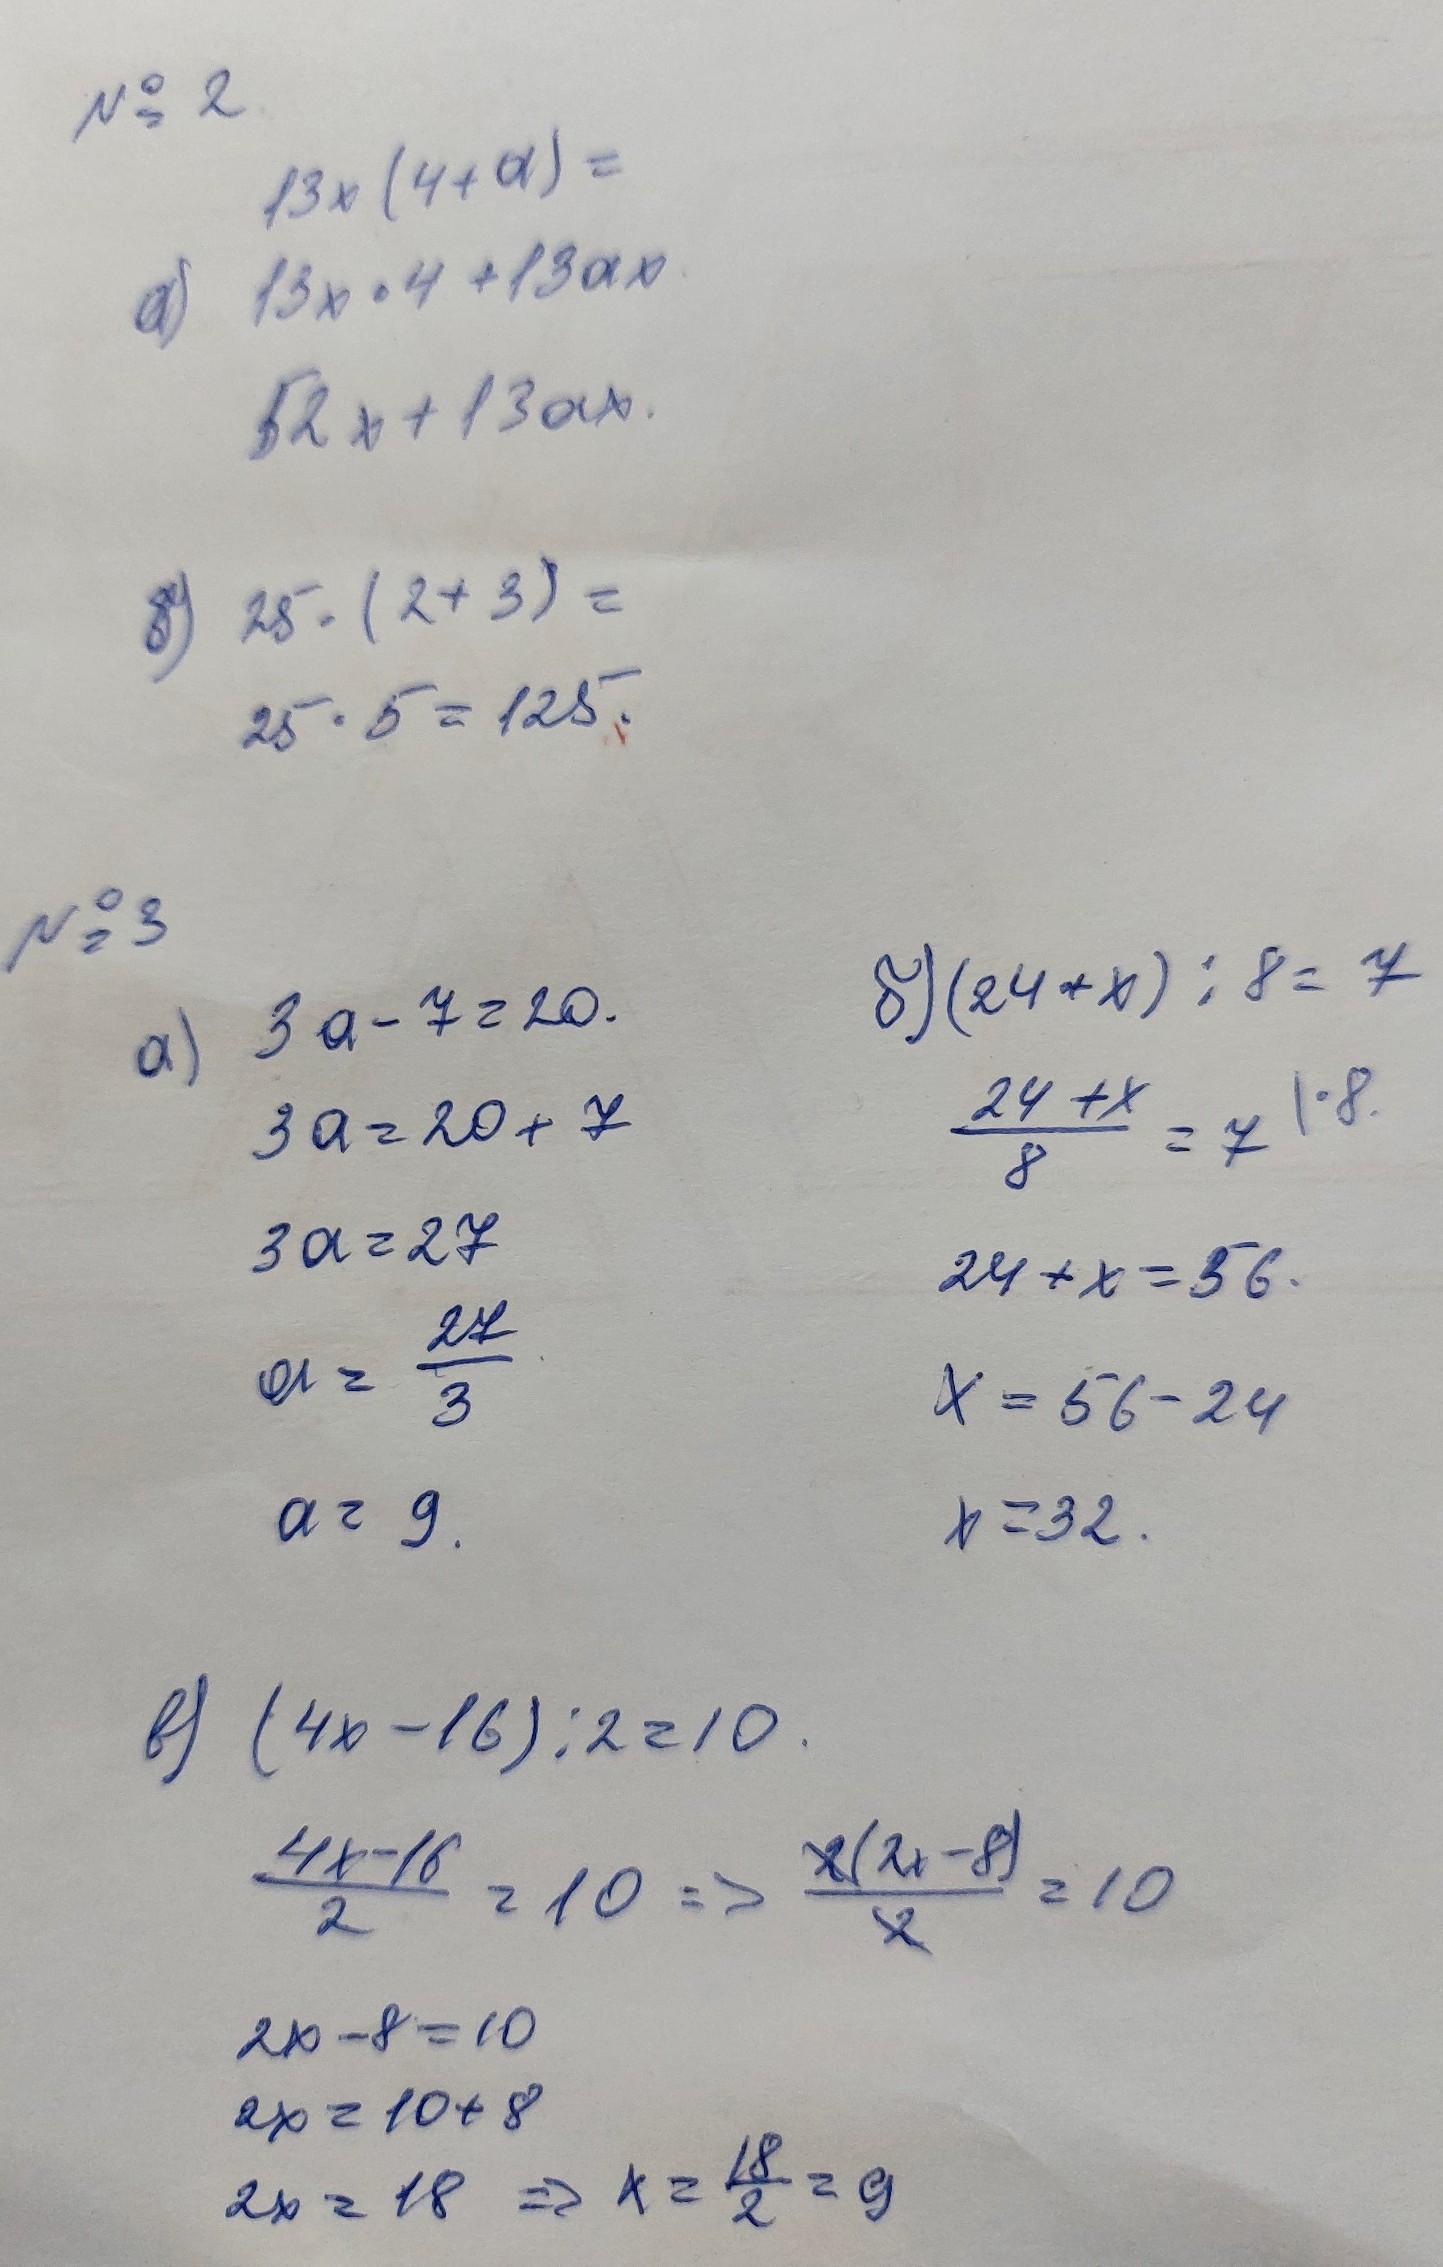 № 2
13x(4+a)=
а) 13x·4+13ax.
52x+13ax.
б) 25·(2+3)=
25·5=125.
№ 3
а) 3a-7=20.
3a=20+7
3a=27
a=27/3
a=9.
б) (24+x):8=7
(24+x)/8=7 |·8.
24+x=56.
x=56-24
x=32.
в) (4x-16):2=10.
(4x-16)/2=10 => 2(2x-8)/2=10
2x-8=10
2x=10+8
2x=18 => x=18/2=9